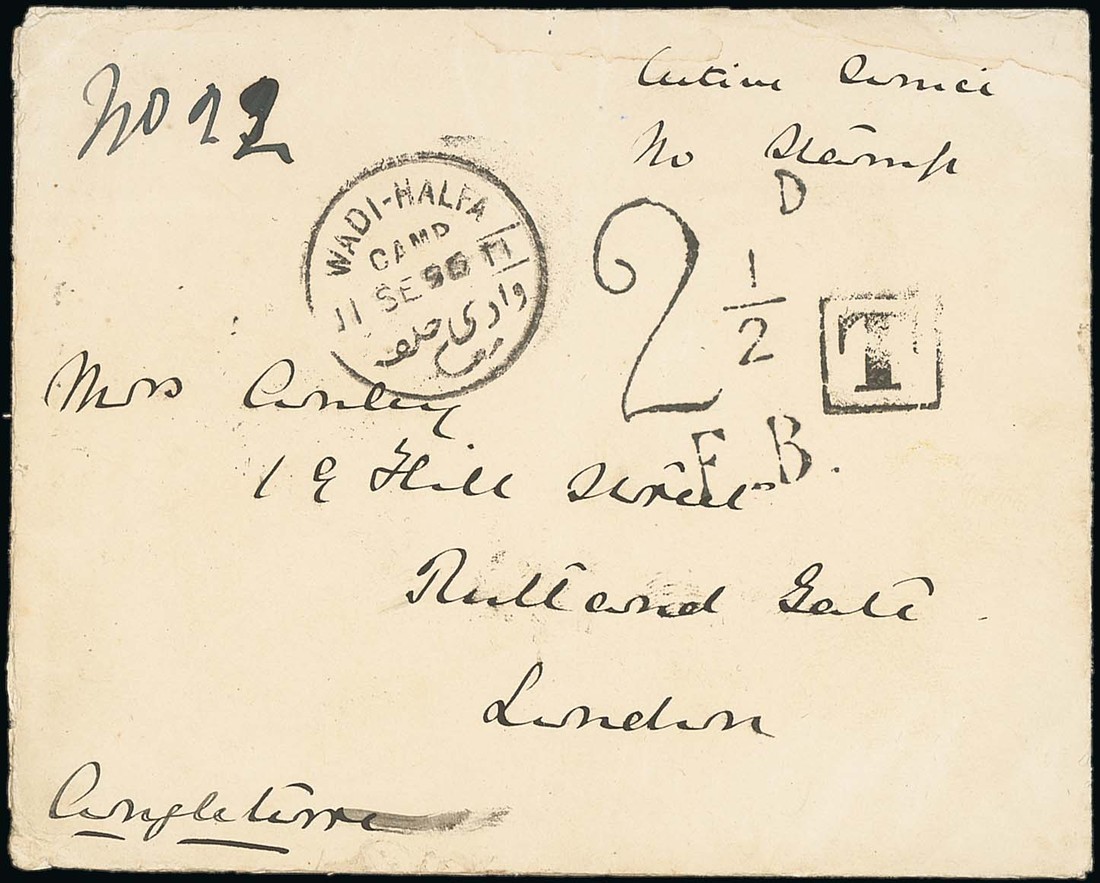 No 22
Active Service
No Stamp
WADI-HALFA
CAMP
11 SE 96
وادى حلفه
2 1/2 D
T
F.B.
Miss Conley
19 Hill Street
Rutland Gate
London
Angleterre